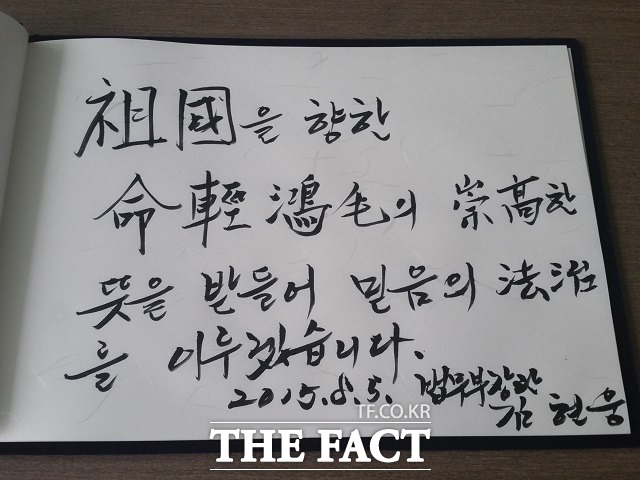 祖國을 향한
命輕鴻毛의 崇高한
뜻을 받들어 믿음의 法治
를 이루겠습니다.
2015.8.5. 법무부장관
김현웅
TF.CO.KR
THE FACT